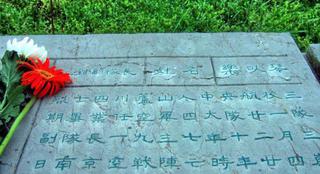 隊長 烈士 樂以琴
烈士四川蘆山人中央航校三
期畢業任空軍四大隊廿一隊
副隊長一九三七年十二月三
日南京空戰陣亡時年廿四